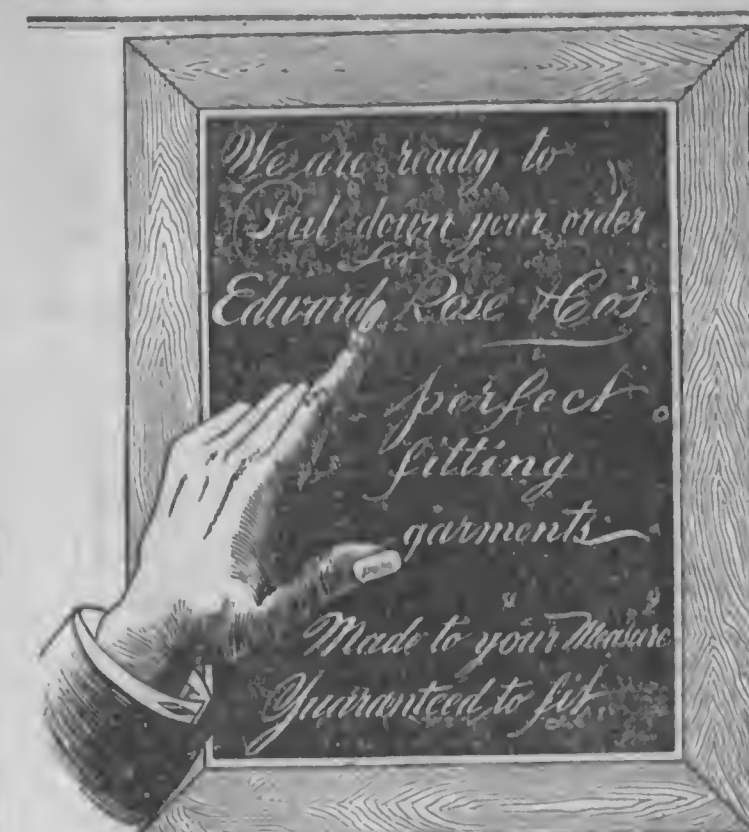 We are ready to
Put down your order
for
Edward Rose & Co's
perfect
fitting
garments
Made to your Measure
Guaranteed to fit